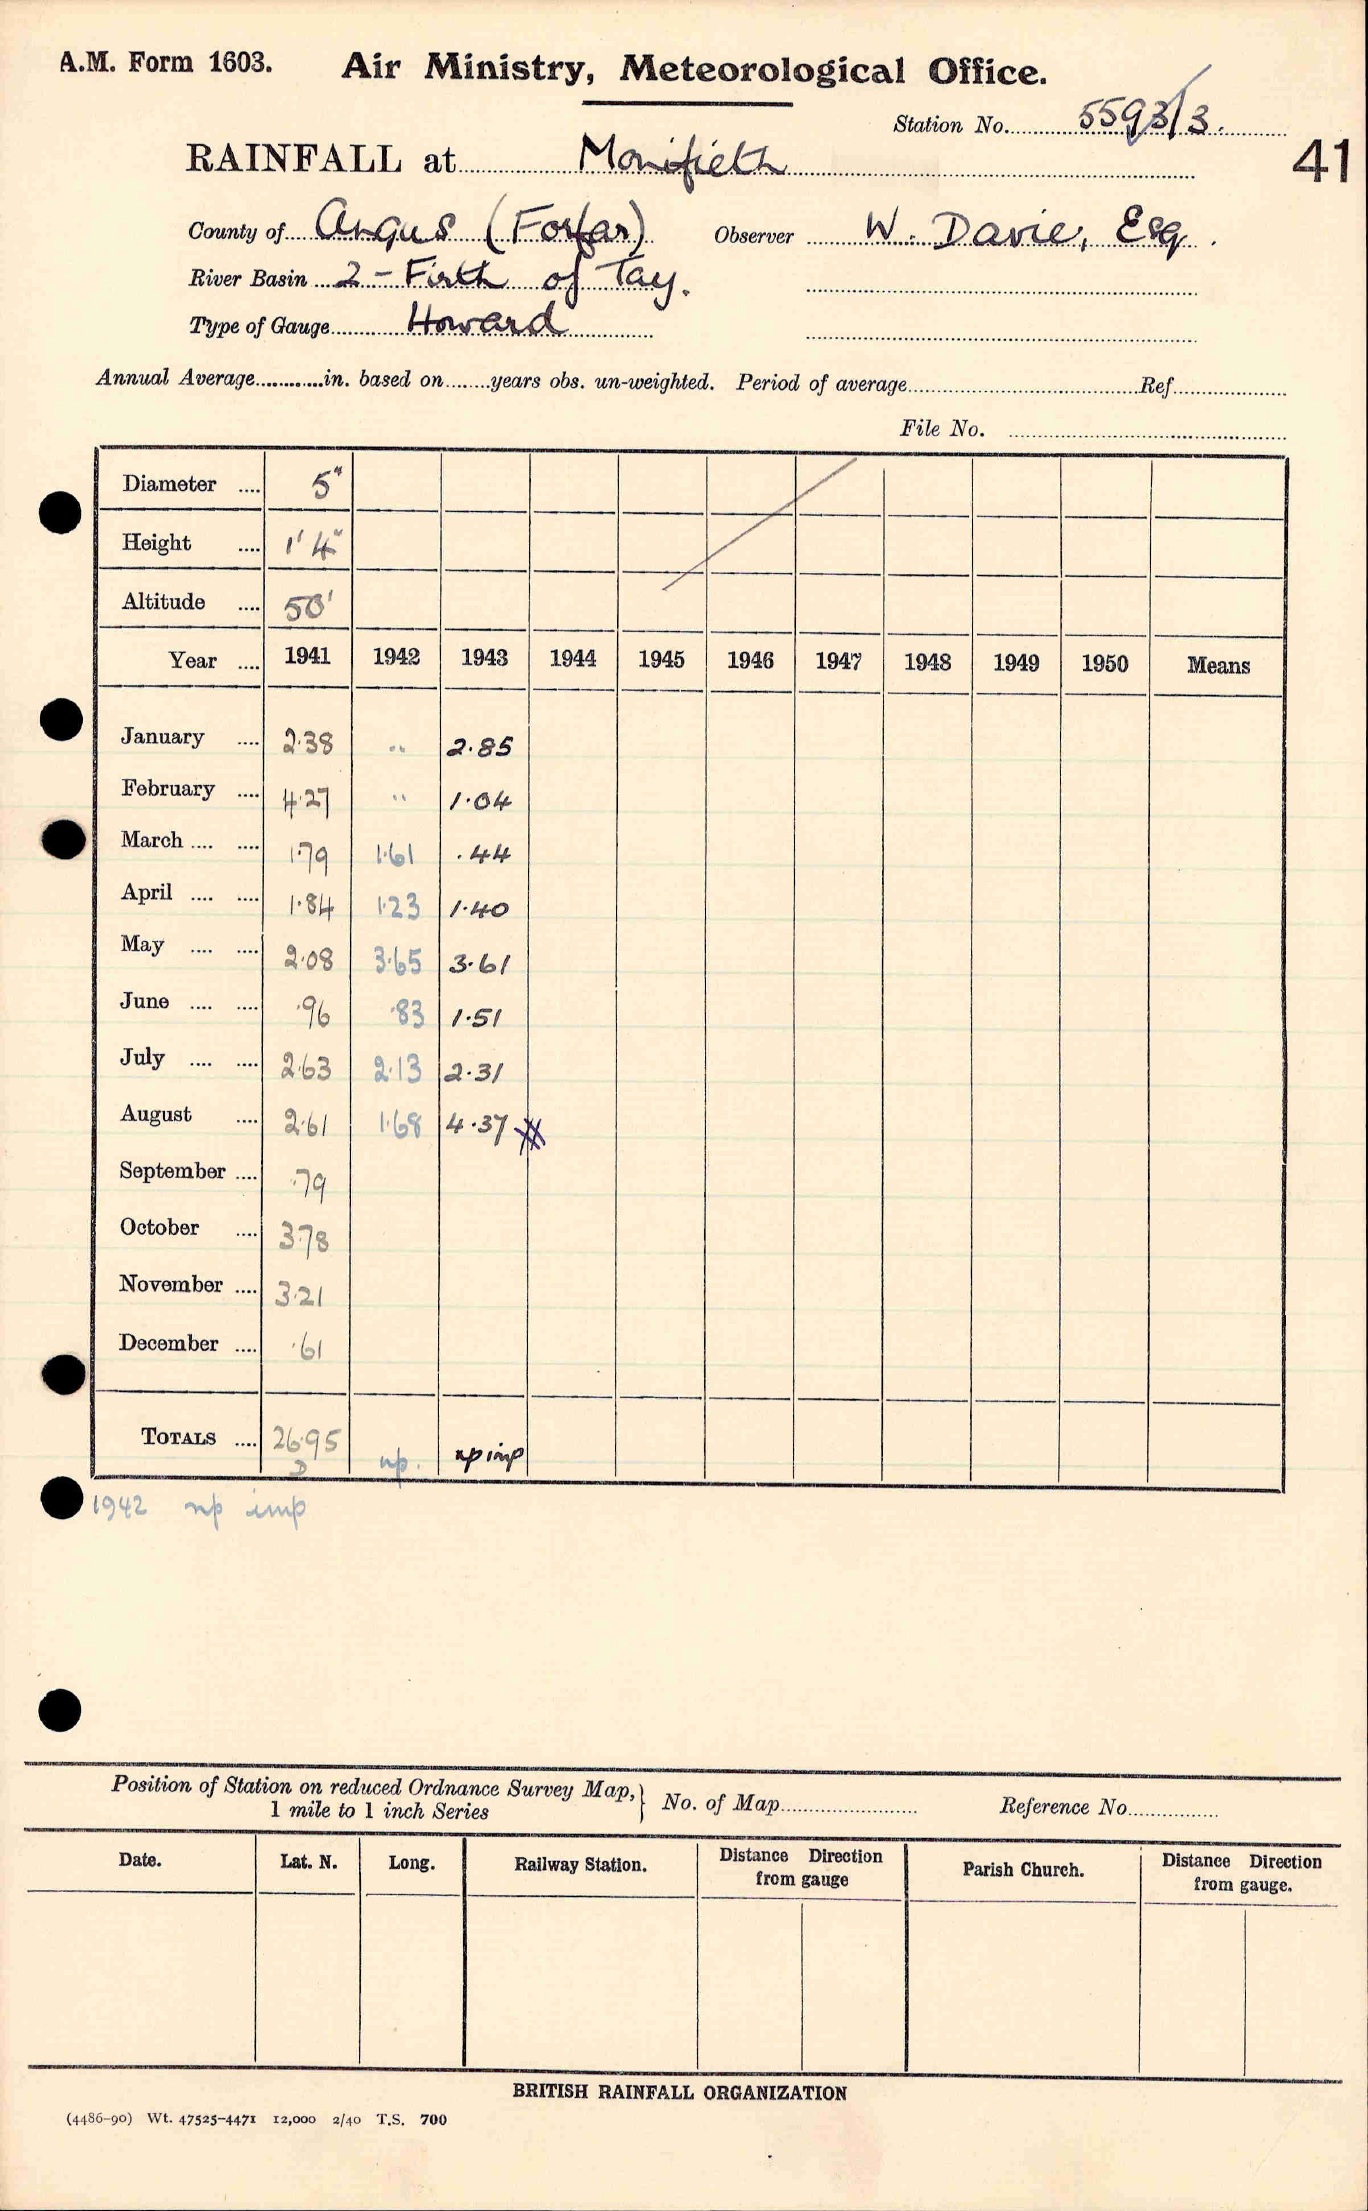 A.M. Form 1603. Air Ministry, Meteorological Office.
Station No. 5593/3.
41
RAINFALL at Monifieth
County of Angus (Forfar) Observer W. Davie, Esq.
River Basin 2 - Firth of Tay.
Type of Gauge Howard
Annual Average............in. based on........years obs. un-weighted. Period of average........................Ref................
File No. ................
Diameter .... 5"
Height .... 1' 4"
Altitude .... 50'
Year .... 1941 1942 1943 1944 1945 1946 1947 1948 1949 1950 Means
January .... 2.38 .. 2.85
February .... 4.27 .. 1.04
March .... .... 1.79 1.61 .44
April .... .... 1.84 1.23 1.40
May .... .... 2.08 3.65 3.61
June .... .... .96 .83 1.51
July .... .... 2.63 2.13 2.31
August .... 2.61 1.68 4.37
September .... .79
October .... 3.78
November .... 3.21
December .... .61
TOTALS .... 26.95 np. np imp
D
1942 np imp
Position of Station on reduced Ordnance Survey Map, } No. of Map................ Reference No................
1 mile to 1 inch Series
Date. Lat. N. Long. Railway Station. Distance Direction from gauge Parish Church. Distance Direction from gauge.
BRITISH RAINFALL ORGANIZATION
(4486-90) Wt. 47525-4471 12,000 2/40 T.S. 700